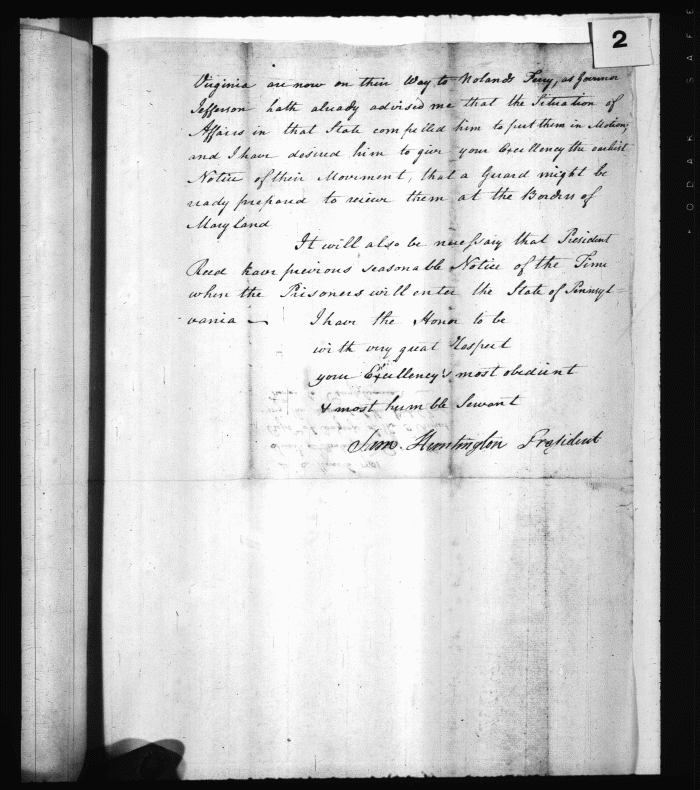 2
Virginia are now on their Way to Nolands Ferry, as Governor
Jefferson hath already advised me that the Situation of
Affairs in that State compelled him to put them in Motion;
and I have desired him to give your Excellency the earliest
Notice of their Movement, that a Guard might be
ready prepared to receive them at the Borders of
Maryland
It will also be necessary that President
Reed have previous seasonable Notice of the Time
when the Prisoners will enter the State of Pennsyl=
vania — I have the Honor to be
with very great Respect
your Excellency's most obedient
& most humble Servant
Sam. Huntington President
KODAK SAFE